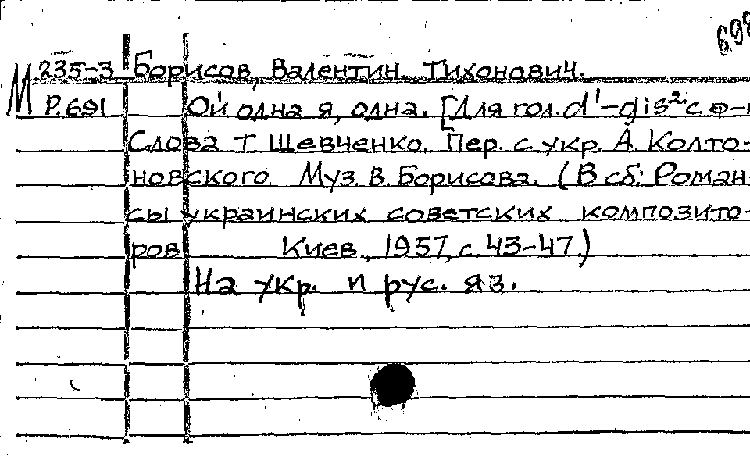 698
М 235-3 Борисов, Валентин Тихонович.
Р.691 Ой одна я, одна. [Для гол. d¹-gis² с ф-
Слова Т. Шевченко. Пер. с укр. А. Колто-
новского. Муз. В. Борисова. (В сб.: Роман-
сы украинских советских композито-
ров Киев, 1957, с. 43-47.)
На укр. и рус. яз.